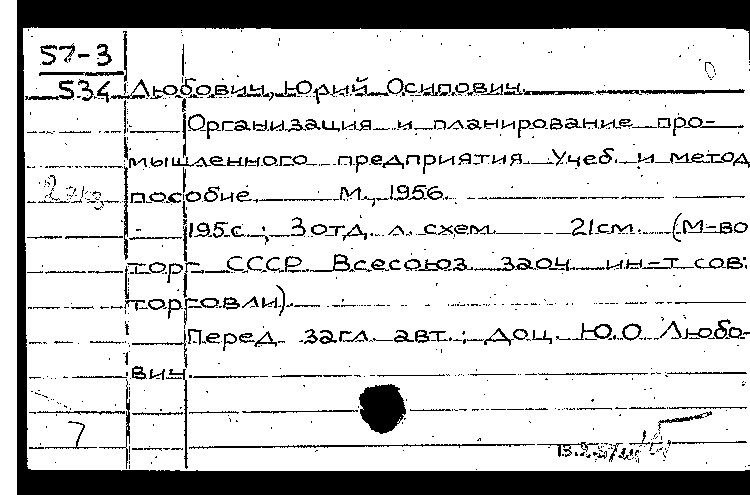 57-3
534 Любович, Юрий Осипович.
Организация и планирование про-
мышленного предприятия Учеб. и метод
2 экз пособие. М., 1956.
195с.; 3 отд. л. схем. 21см. (М-во
торг СССР Всесоюз. заоч. ин-т сов.
торговли).
Перед загл. авт.: доц. Ю.О Любо-
вич.
7